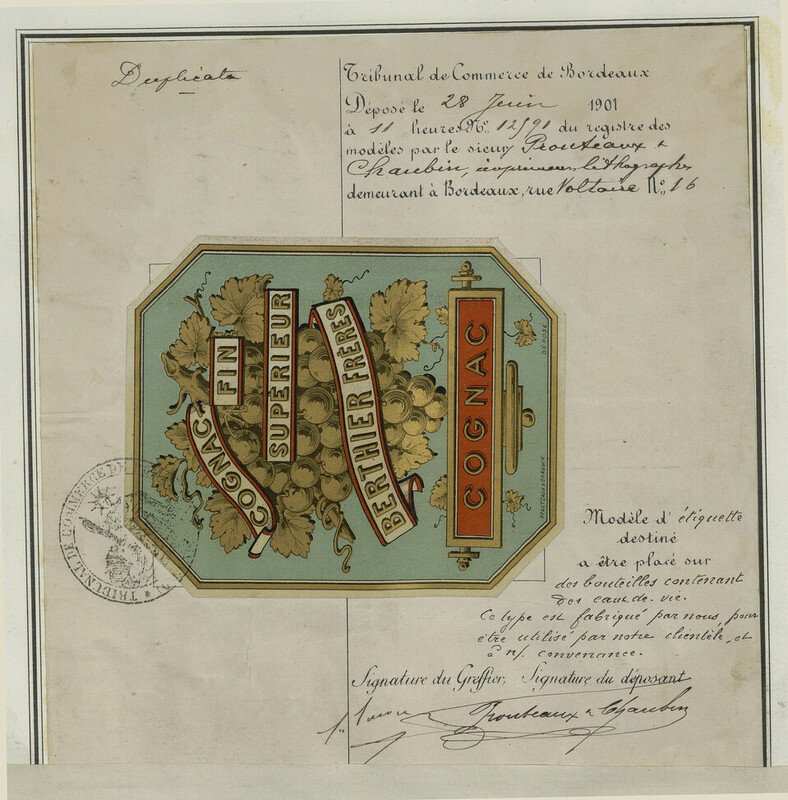 Duplicata
Tribunal de Commerce de Bordeaux
Déposé le 28 Juin 1901
à 11 heures Nº. 12591 du registre des
modèles par le sieur Prouteaux &
Chaubin, imprimeurs lithographes
demeurant à Bordeaux, rue Voltaire Nº. 16
COGNAC-
FIN
SUPÉRIEUR
BERTHIER FRÈRES
COGNAC
DÉPOSÉ
TRIBUNAL DE COMMERCE DE
Modèle d'étiquette
destiné
a être placé sur
des bouteilles contenant
des eaux-de-vie.
Ce type est fabriqué par nous, pour
être utilisé par notre clientèle, et
à n/. convenance.
Signature du Greffier, Signature du déposant
Prouteaux & Chaubin